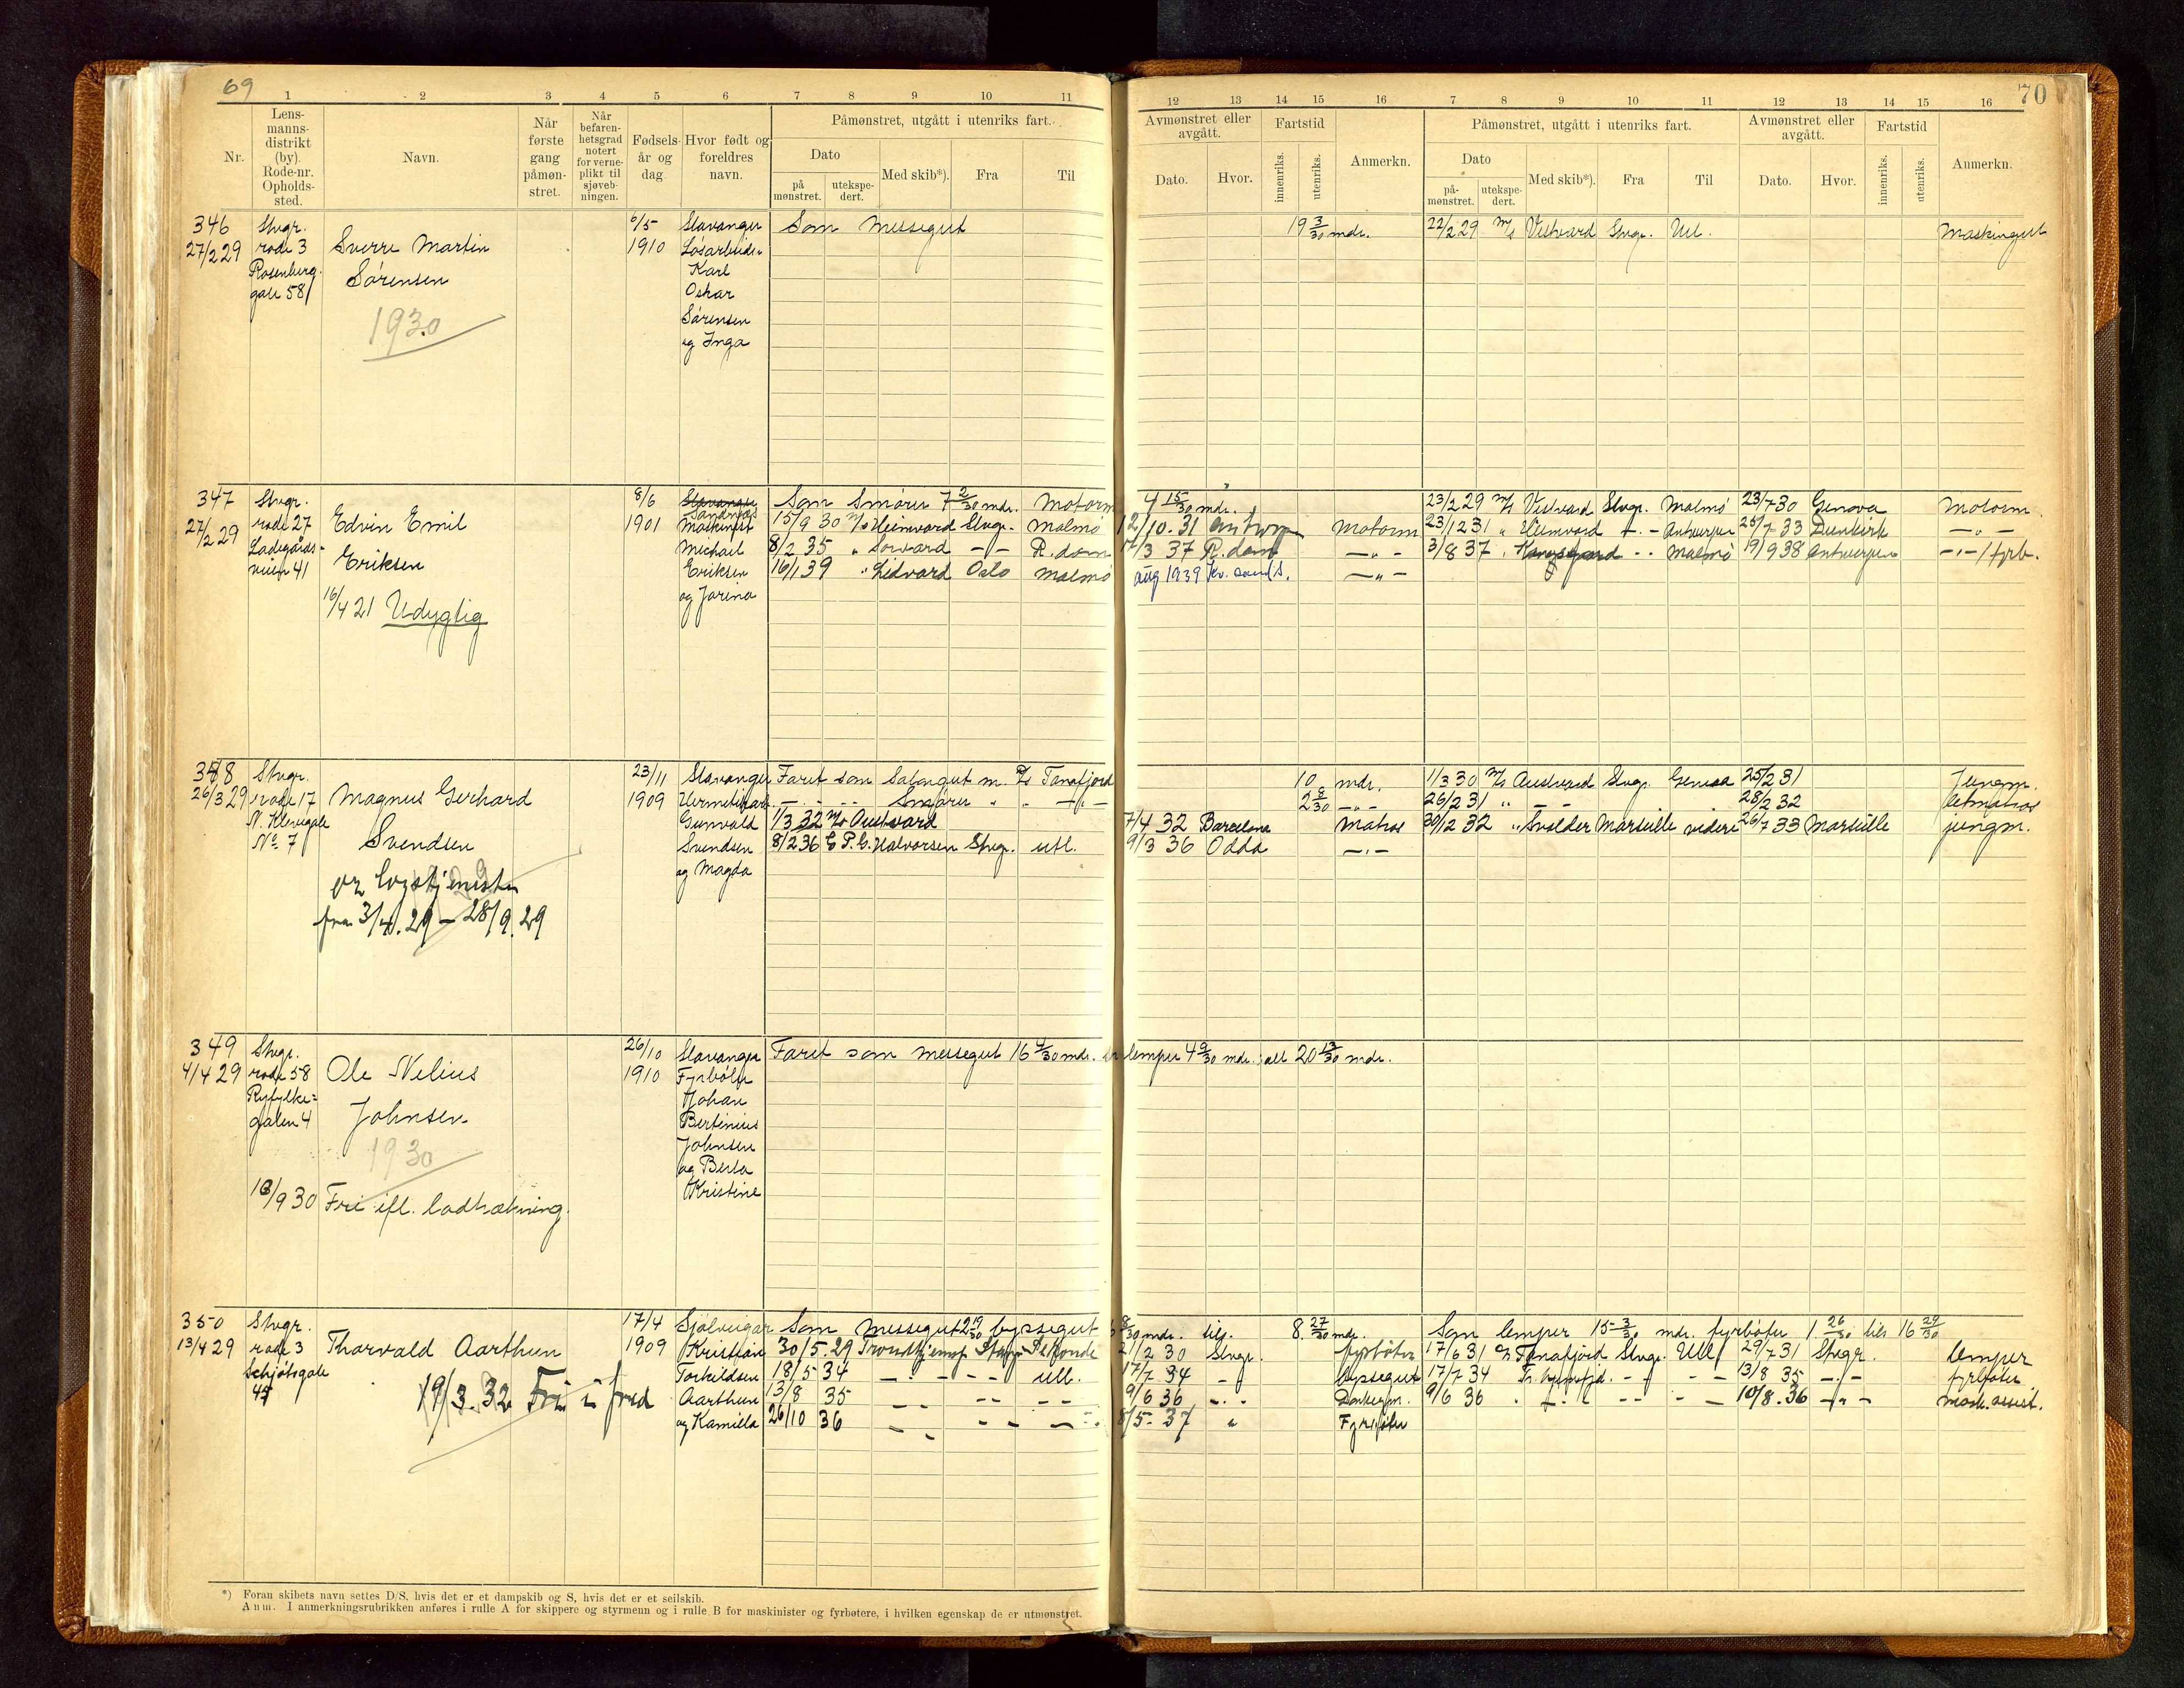 69
70
1 2 3 4 5 6 7 8 9 10 11
12 13 14 15 16 7 8 9 10 11 12 13 14 15 16
Nr.
Lens-
manns-
distrikt
(by).
Rode-nr.
Opholds-
sted.
Navn.
Når
første
gang
påmøn-
stret.
Når
befaren-
hetsgrad
notert
for verne-
plikt til
sjøveb-
ningen.
Fødsels-
år og
dag
Hvor født og
foreldres
navn.
Påmønstret, utgått i utenriks fart.
Dato
på
mønstret.
utekspe-
dert.
Med skib*).
Fra
Til
Avmønstret eller
avgått.
Dato.
Hvor.
Fartstid
innenriks.
utenriks.
Anmerkn.
Påmønstret, utgått i utenriks fart.
Dato
på-
mønstret.
utekspe-
dert.
Med skib*).
Fra
Til
Avmønstret eller
avgått.
Dato.
Hvor.
Fartstid
innenriks.
utenriks.
Anmerkn.
346
27/2 29
Stvgr.
rode 3
Rosenberg
gate 58
Sverre Martin
Sørensen
1930
6/5
1910
Stavanger
Løsarbeider
Karl
Oskar
Sørensen
og Inga
Som Messegut
19 3/30 mdr.
22/2 29 M/s Vestvard Stvgr. Utl.
Maskingut
347
27/2 29
Stvgr.
rode 27
Ladegårds-
veien 41
Edvin Emil
Eriksen
16/4 21 Udygtig
8/6
1901
Stavanger
Sandnes
Maskinist
Michail
Eriksen
og Jarina
Som Smører 7 2/30 mdr. Motorm 4 15/30 mdr.
15/9 30 M/s Heimvard Stvgr. Malmö
8/2 35 " Sorvard - - R.dam
16/1 39 " Lidvard Oslo Malmö
12/10.31 Antwerpen Motorm
17/3 37 R.dam - " -
aug 1939 Kr. sand S. - " -
23/2 29 M/s Vestvard Stvgr. Malmö 23/7 30 Genova Motorm.
23/12 31 " Heimvard - - Antwerpen 25/7 33 Dunkirk - " -
3/8 37 " - - Malmö 19/9 38 Antwerpen - " - / fyrb.
348
26/3 29
Stvgr.
rode 17
N. Klevegate
No 7
Magnus Gerhard
Svendsen
fra 3/4.29 - 28/9.29
23/11
1909
Stavanger
Hermetikarb.
Gunvald
Svendsen
og Magda
Faret som Salongut m. D/s Tanafjord
Smører
1/3 32 M/s Austvard
8/2 36 E P. C. Halvorsen Stvgr. utl.
10 mdr.
2 8/30 - " -
7/4 32 Barcelona Matros
9/3 36 Odda - " -
1/3 30 M/s Austvard Stvgr. Genoa 25/2 31 Jungm.
26/2 31 " - - 28/2 32 letmatros
30/12 32 " Svolder Marseille videre 26/7 33 Marseille jungm.
349
4/4 29
Stvgr.
rode 58
Ryfylke=
gaten 4
Ole Nelius
Johnsen
1930
18/9 30 Fri ifl. lodtrækning.
26/10
1910
Stavanger
Fyrbøter
Johan
Bertinius
Johnsen
og Berta
Kristine
Faret som messegut 16 4/30 mdr. lemper 4 9/30 mdr. ialt 20 13/30 mdr.
350
13/4 29
Stvgr.
rode 3
Schjøtsgate
Thorvald Aarthun
19/3.32 Fri i fred
17/4
1909
Sjølvigar
Kristian
Torkildsen
Aarthun
og Kamilla
Som Messegut 2 19/30 byssegut 6 8/30 mdr. tils. 8 27/30 mdr.
30/5 29
18/5 34 - - - - utl.
13/8 35
26/10 36
21/2 30 Stvgr. fyrbøter
17/7 34 - " byssegut
9/6 36 - " - Donkeym.
8/5 37 " Fyrbøter
Som lemper 15 3/30 mdr. fyrbøter 1 26/30 tils 16 29/30
17/6 31 D/s Tanafjord Stvgr. Utl 29/7 31 Stvgr. lemper
17/7 34 - - 13/8 35 - " - fyrbøter
9/6 36 - - 10/8.36 - " - mask. assist.
*) Foran skibets navn settes D/S, hvis det er et dampskib og S, hvis det er et seilskib.
Anm. I anmerkningsrubrikken anføres i rulle A for skippere og styrmenn og i rulle B for maskinister og fyrbøtere, i hvilken egenskap de er utmønstret.